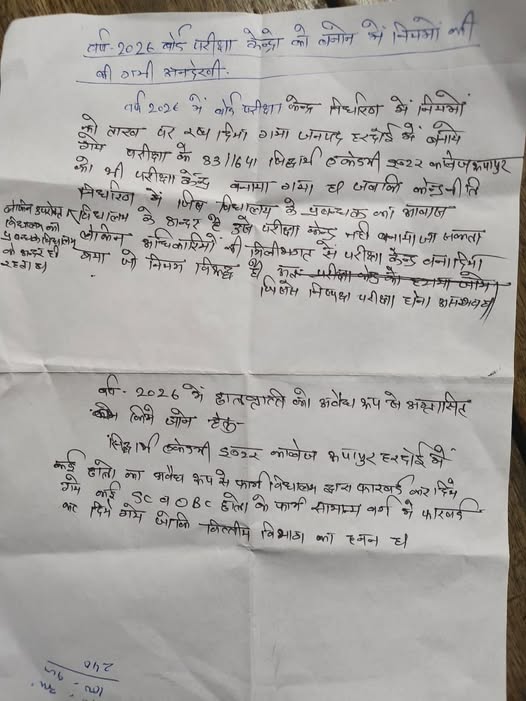 वर्ष- 2026 बोर्ड परीक्षा केन्द्रो को बनाने में नियमों की
की गयी अनदेखी-
वर्ष 2026 में बोर्ड परीक्षा केन्द्र निर्धारण में नियमों
को ताख पर रख दिया गया जनपद हरदोई में बनाये
गये परीक्षा के 83/1641 सिद्धार्थ एकेडमी इण्टर कालेज रूपापुर
को भी परीक्षा केन्द्र बनाया गया है। जबकि केन्द्र नीति
निर्धारण में जिस विद्यालय के प्रबन्धक का आवास
विद्यालय के अन्दर है उसे परीक्षा केन्द्र नही बनाया जा सकता
लेकिन अधिकारियों की मिलीभगत से परीक्षा केन्द्र बना दिया
गया जो नियम विरूद्ध है अतः परीक्षा केन्द्र को हटाया जाये।
जिससे निष्पक्ष परीक्षा होना असम्भव है।
लेकिन उपरोक्त
विद्यालय का
प्रबन्धक विद्यालय
के अन्दर ही
रहता है।
वर्ष- 2026 में छात्रवृत्ति को अवैध रूप से अग्रसारित
किये जाने हेतु-
सिद्धार्थ एकेडमी इण्टर कालेज रूपापुर हरदोई में
कई छात्रो का अवैध रूप से फार्म विद्यालय द्वारा फारवर्ड कर दिये
गये कई SC व OBC छात्रो के फार्म सामान्य वर्ग में फारवर्ड
कर दिये गये जोकि वित्तीय विभाग का हनन है।